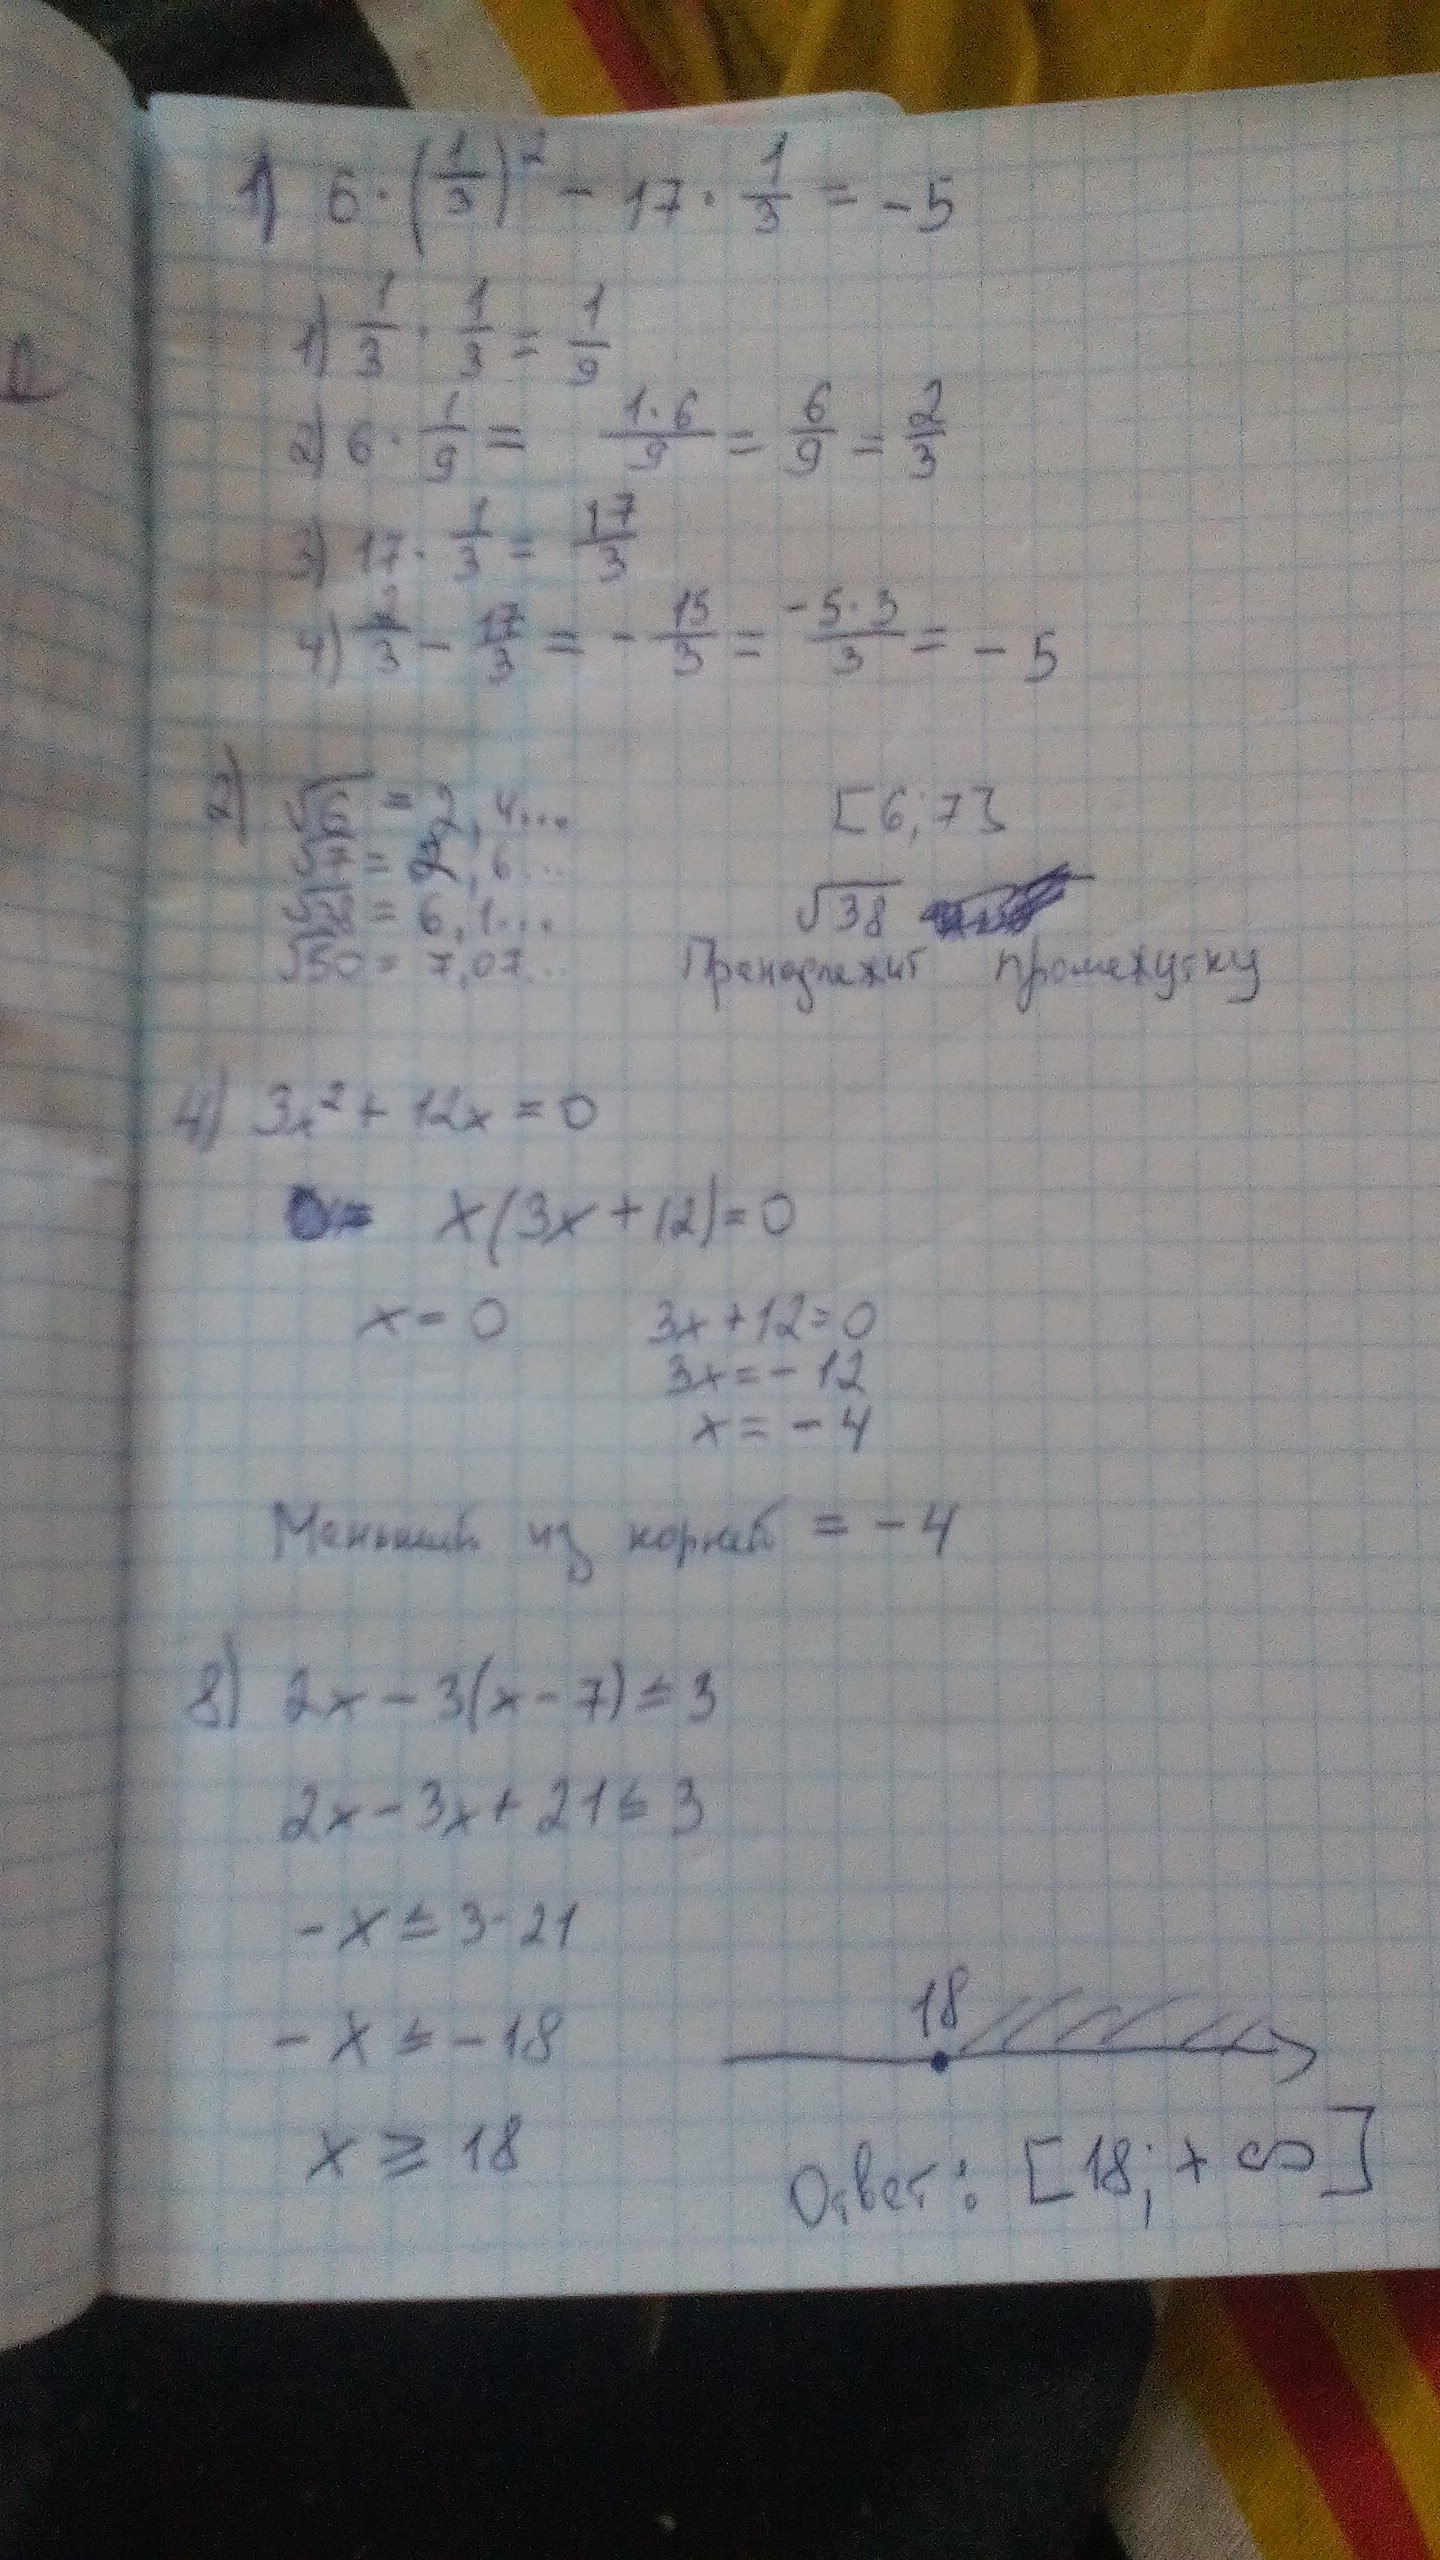 1) 6 · (1/3)² - 17 · 1/3 = -5
1) 1/3 · 1/3 = 1/9
2) 6 · 1/9 = 1·6/9 = 6/9 = 2/3
3) 17 · 1/3 = 17/3
4) 2/3 - 17/3 = - 15/3 = -5·3/3 = - 5
2) √6 = 2,4... [6;7]
√7 = 2,6...
√38 = 6,1... √38
√50 = 7,07... Пренадлежит промежутку
4) 3x² + 12x = 0
x(3x + 12) = 0
x = 0 3x + 12 = 0
3x = - 12
x = - 4
Меньший из корней = - 4
8) 2x - 3(x - 7) ≤ 3
2x - 3x + 21 ≤ 3
- x ≤ 3 - 21
- x ≤ - 18 18
x ≥ 18 Ответ: [18; + ∞]